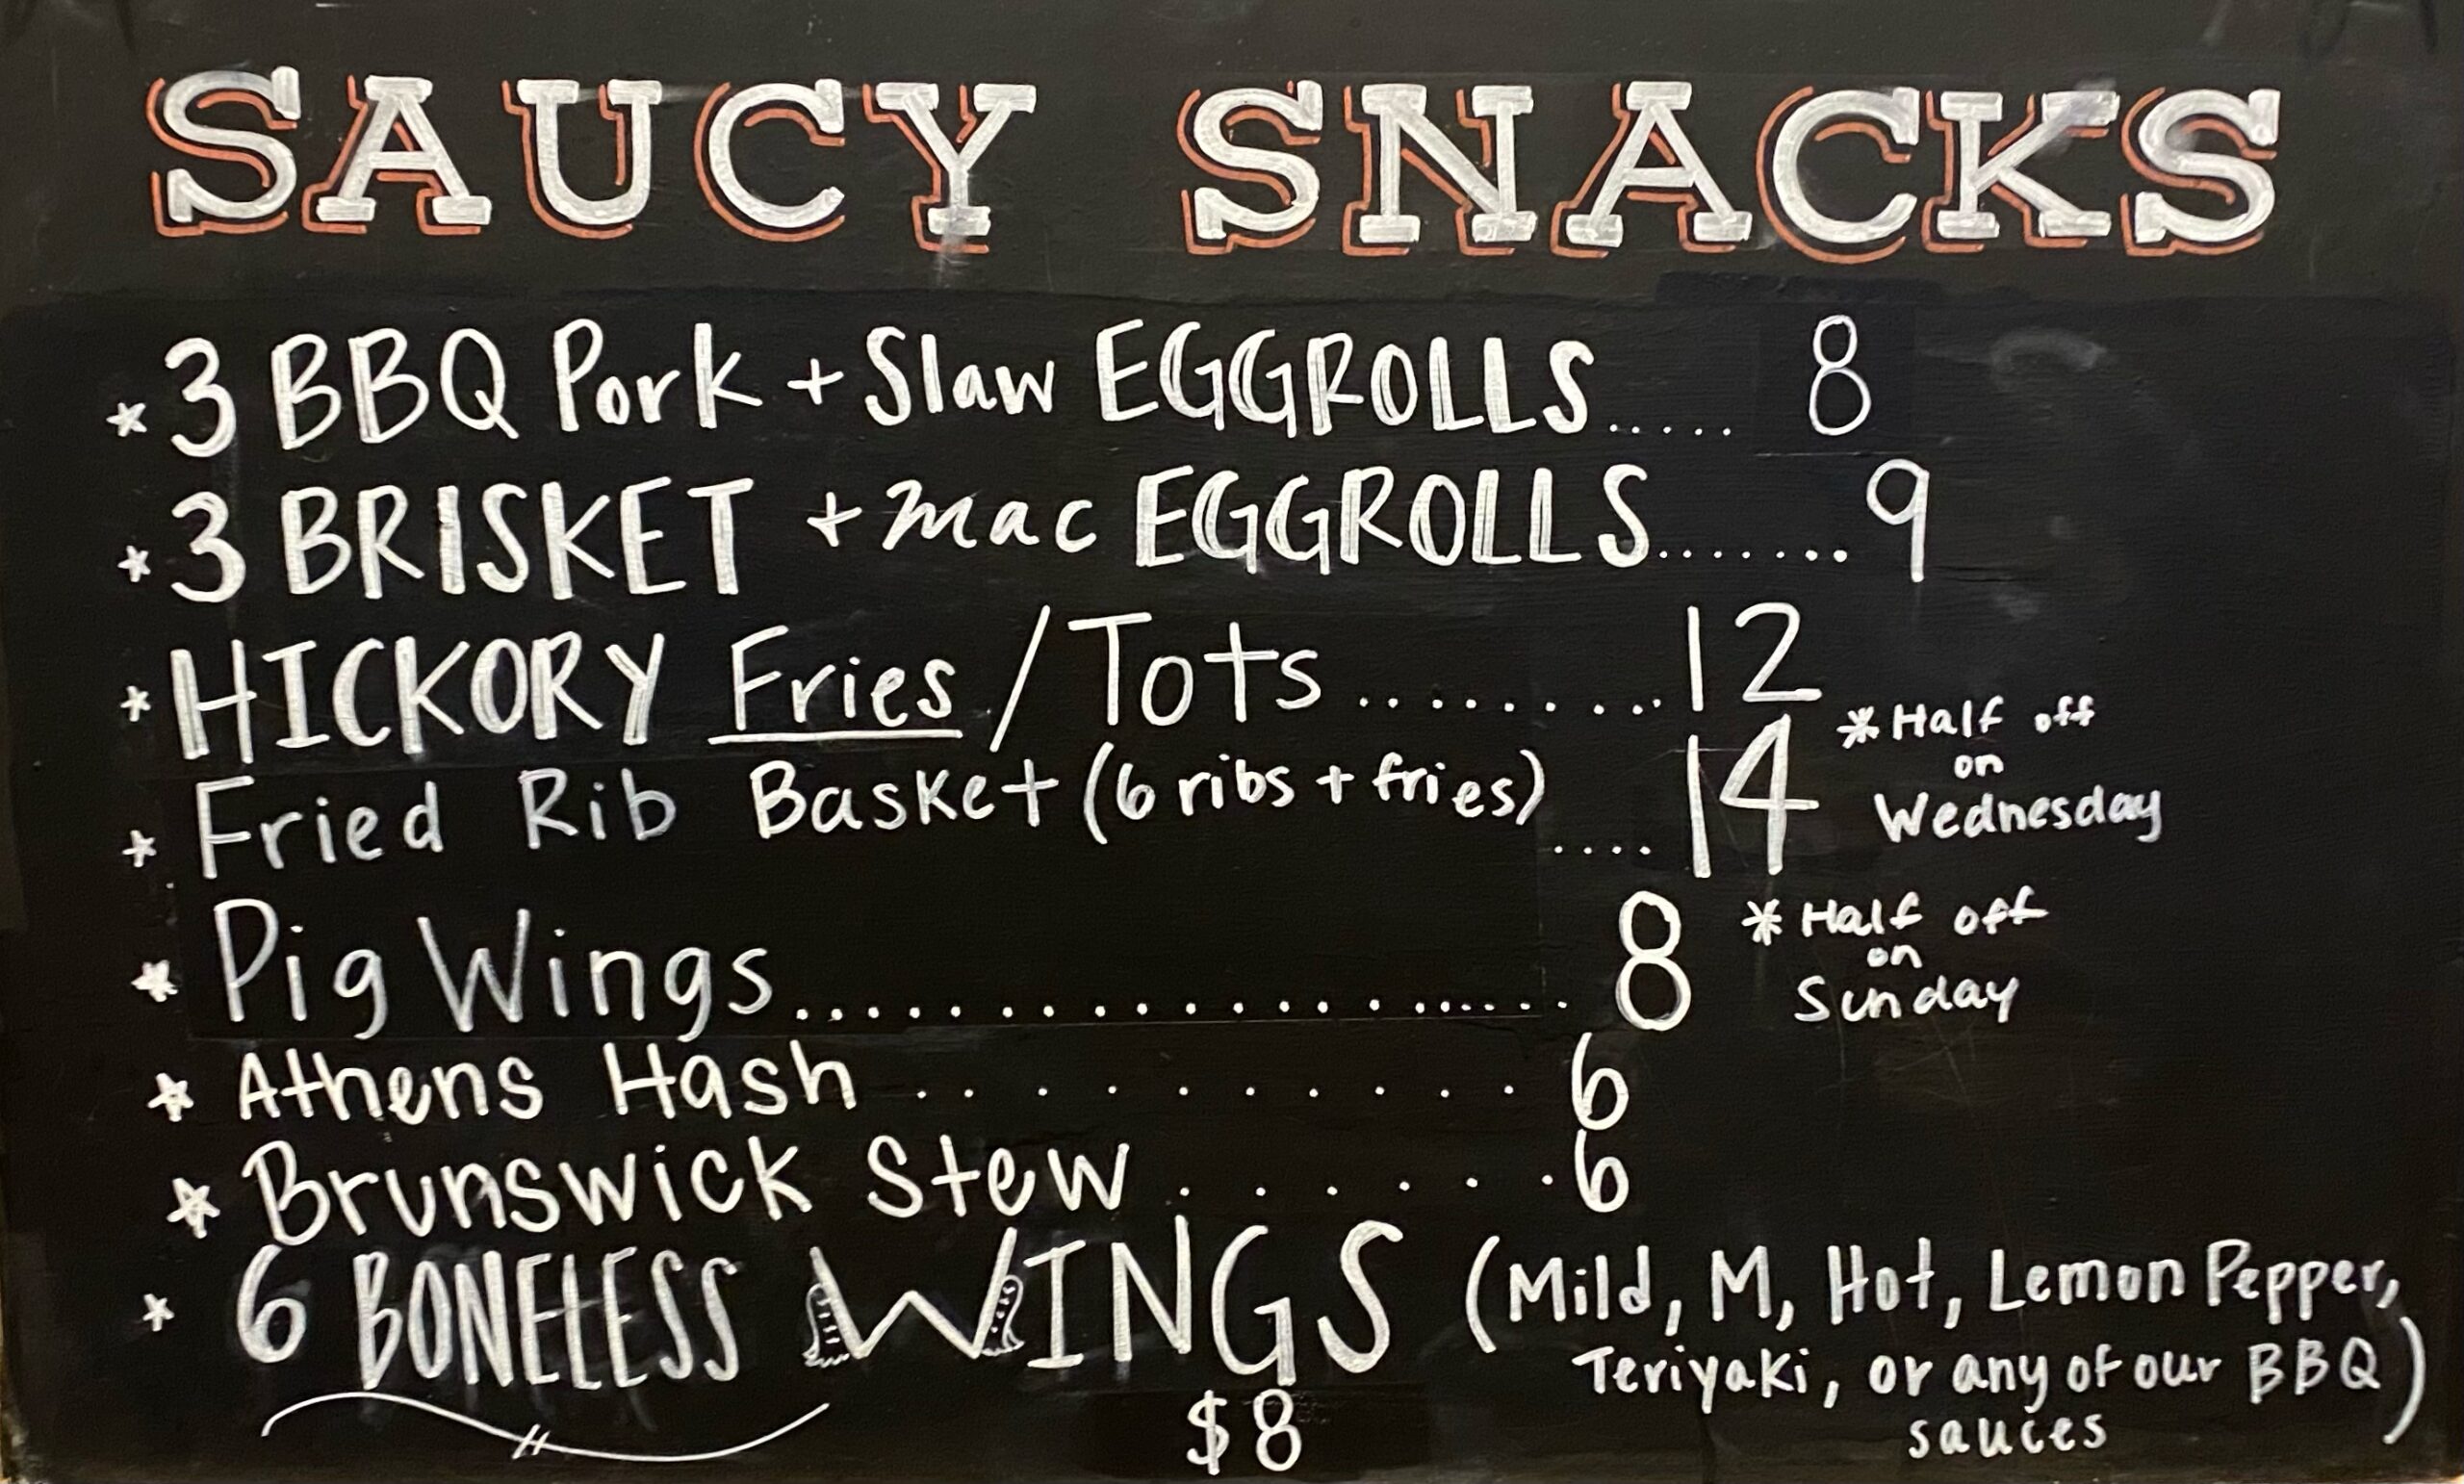 SAUCY SNACKS
* 3 BBQ Pork + Slaw EGGROLLS..... 8
* 3 BRISKET + mac EGGROLLS....... 9
* HICKORY Fries / Tots ......... 12
* Fried Rib Basket (6 ribs + fries) .... 14 * Half off
on
Wednesday
* Pig Wings.................... 8 * Half off
on
Sunday
* Athens Hash . . . . . . . . . . . 6
* Brunswick Stew . . . . . . 6
* 6 BONELESS WINGS (Mild, M, Hot, Lemon Pepper,
Teriyaki, or any of our BBQ
sauces)
$8